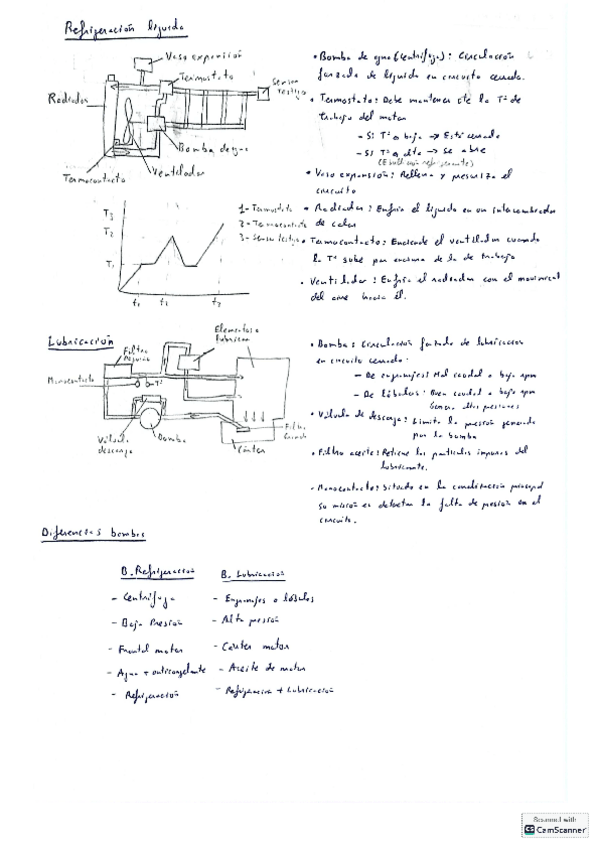 Refrigeración líquida
Vaso expansión
Termostato
Sensor
testigo
Radiador
Bomba de agua
Ventilador
Termocontacto
• Bomba de agua (centrífuga): Circulación
forzada de líquido en circuito cerrado.
• Termostato: Debe mantener cte la Tª de
trabajo del motor
- Si Tª baja → Está cerrado
- Si Tª alta → Se abre
• Vaso expansión: Rellena y presuriza el
circuito
• Radiador: Enfría el líquido en un intercambiador
de calor
• Termocontacto: Enciende el ventilador cuando
la Tª sube por encima de la de trabajo
• Ventilador: Enfría el radiador con el movimiento
del aire hacia él.
T3
T2
T1
t1
t1
t2
1- Termostato
2- Termocontacto
3- Sensor testigo
Lubricación
Elementos a
lubricar
Filtro
Manocontacto
Tª
Válvula
descarga
Bomba
Cárter
Filtro
• Bomba: Circulación forzada de lubricación
en circuito cerrado.
- De engranajes: Mal caudal a bajas rpm
- De lóbulos: Buen caudal a bajas rpm
Genera altas presiones
• Válvula de descarga: Limita la presión generada
por la bomba
• Filtro aceite: Retiene las partículas impuras del
lubricante.
• Manocontacto: Situado en la canalización principal
su misión es detectar la falta de presión en el
circuito.
Diferencias bombas
B. Refrigeración
B. Lubricación
- Centrífuga
- Engranajes o lóbulos
- Baja Presión
- Alta presión
- Frontal motor
- Carter motor
- Agua + anticongelante
- Aceite de motor
- Refrigeración
- Refrigeración + Lubricación
Scanned with
CS CamScanner